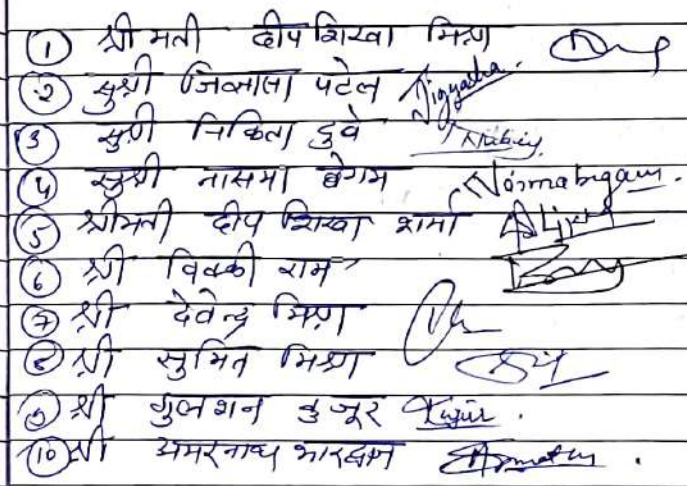 ① श्रीमती दीपशिखा मिश्रा
② सुश्री जिज्ञासा पटेल Jigyasha
③ सुश्री निकिता दुबे
④ सुश्री नासमा बेगम Nasmabegam.
⑤ श्रीमती दीपशिखा शर्मा
⑥ श्री विक्की राम
⑦ श्री देवेन्द्र मिश्रा
⑧ श्री सुमित मिश्रा
⑨ श्री गुलशन कुजूर Kujur.
⑩ श्री अमरनाथ भारद्वाज